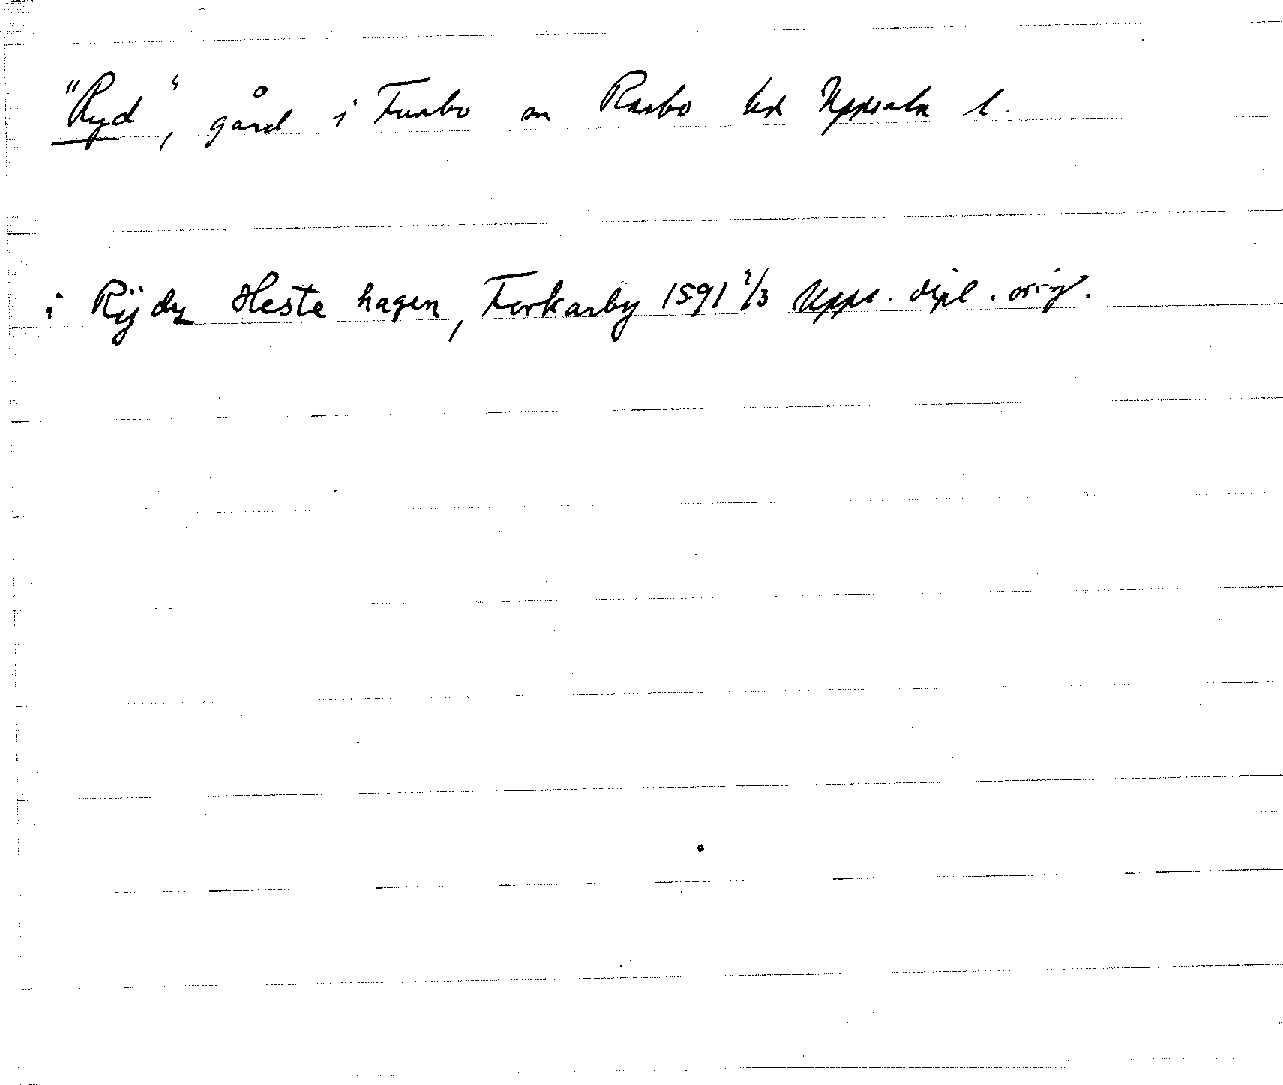 "Ryd", gård i Funbo sn Rasbo hd Uppsala l.
i Rÿdz Heste hagen, Forkarby 1591 2/3 Upps. dipl. orig.